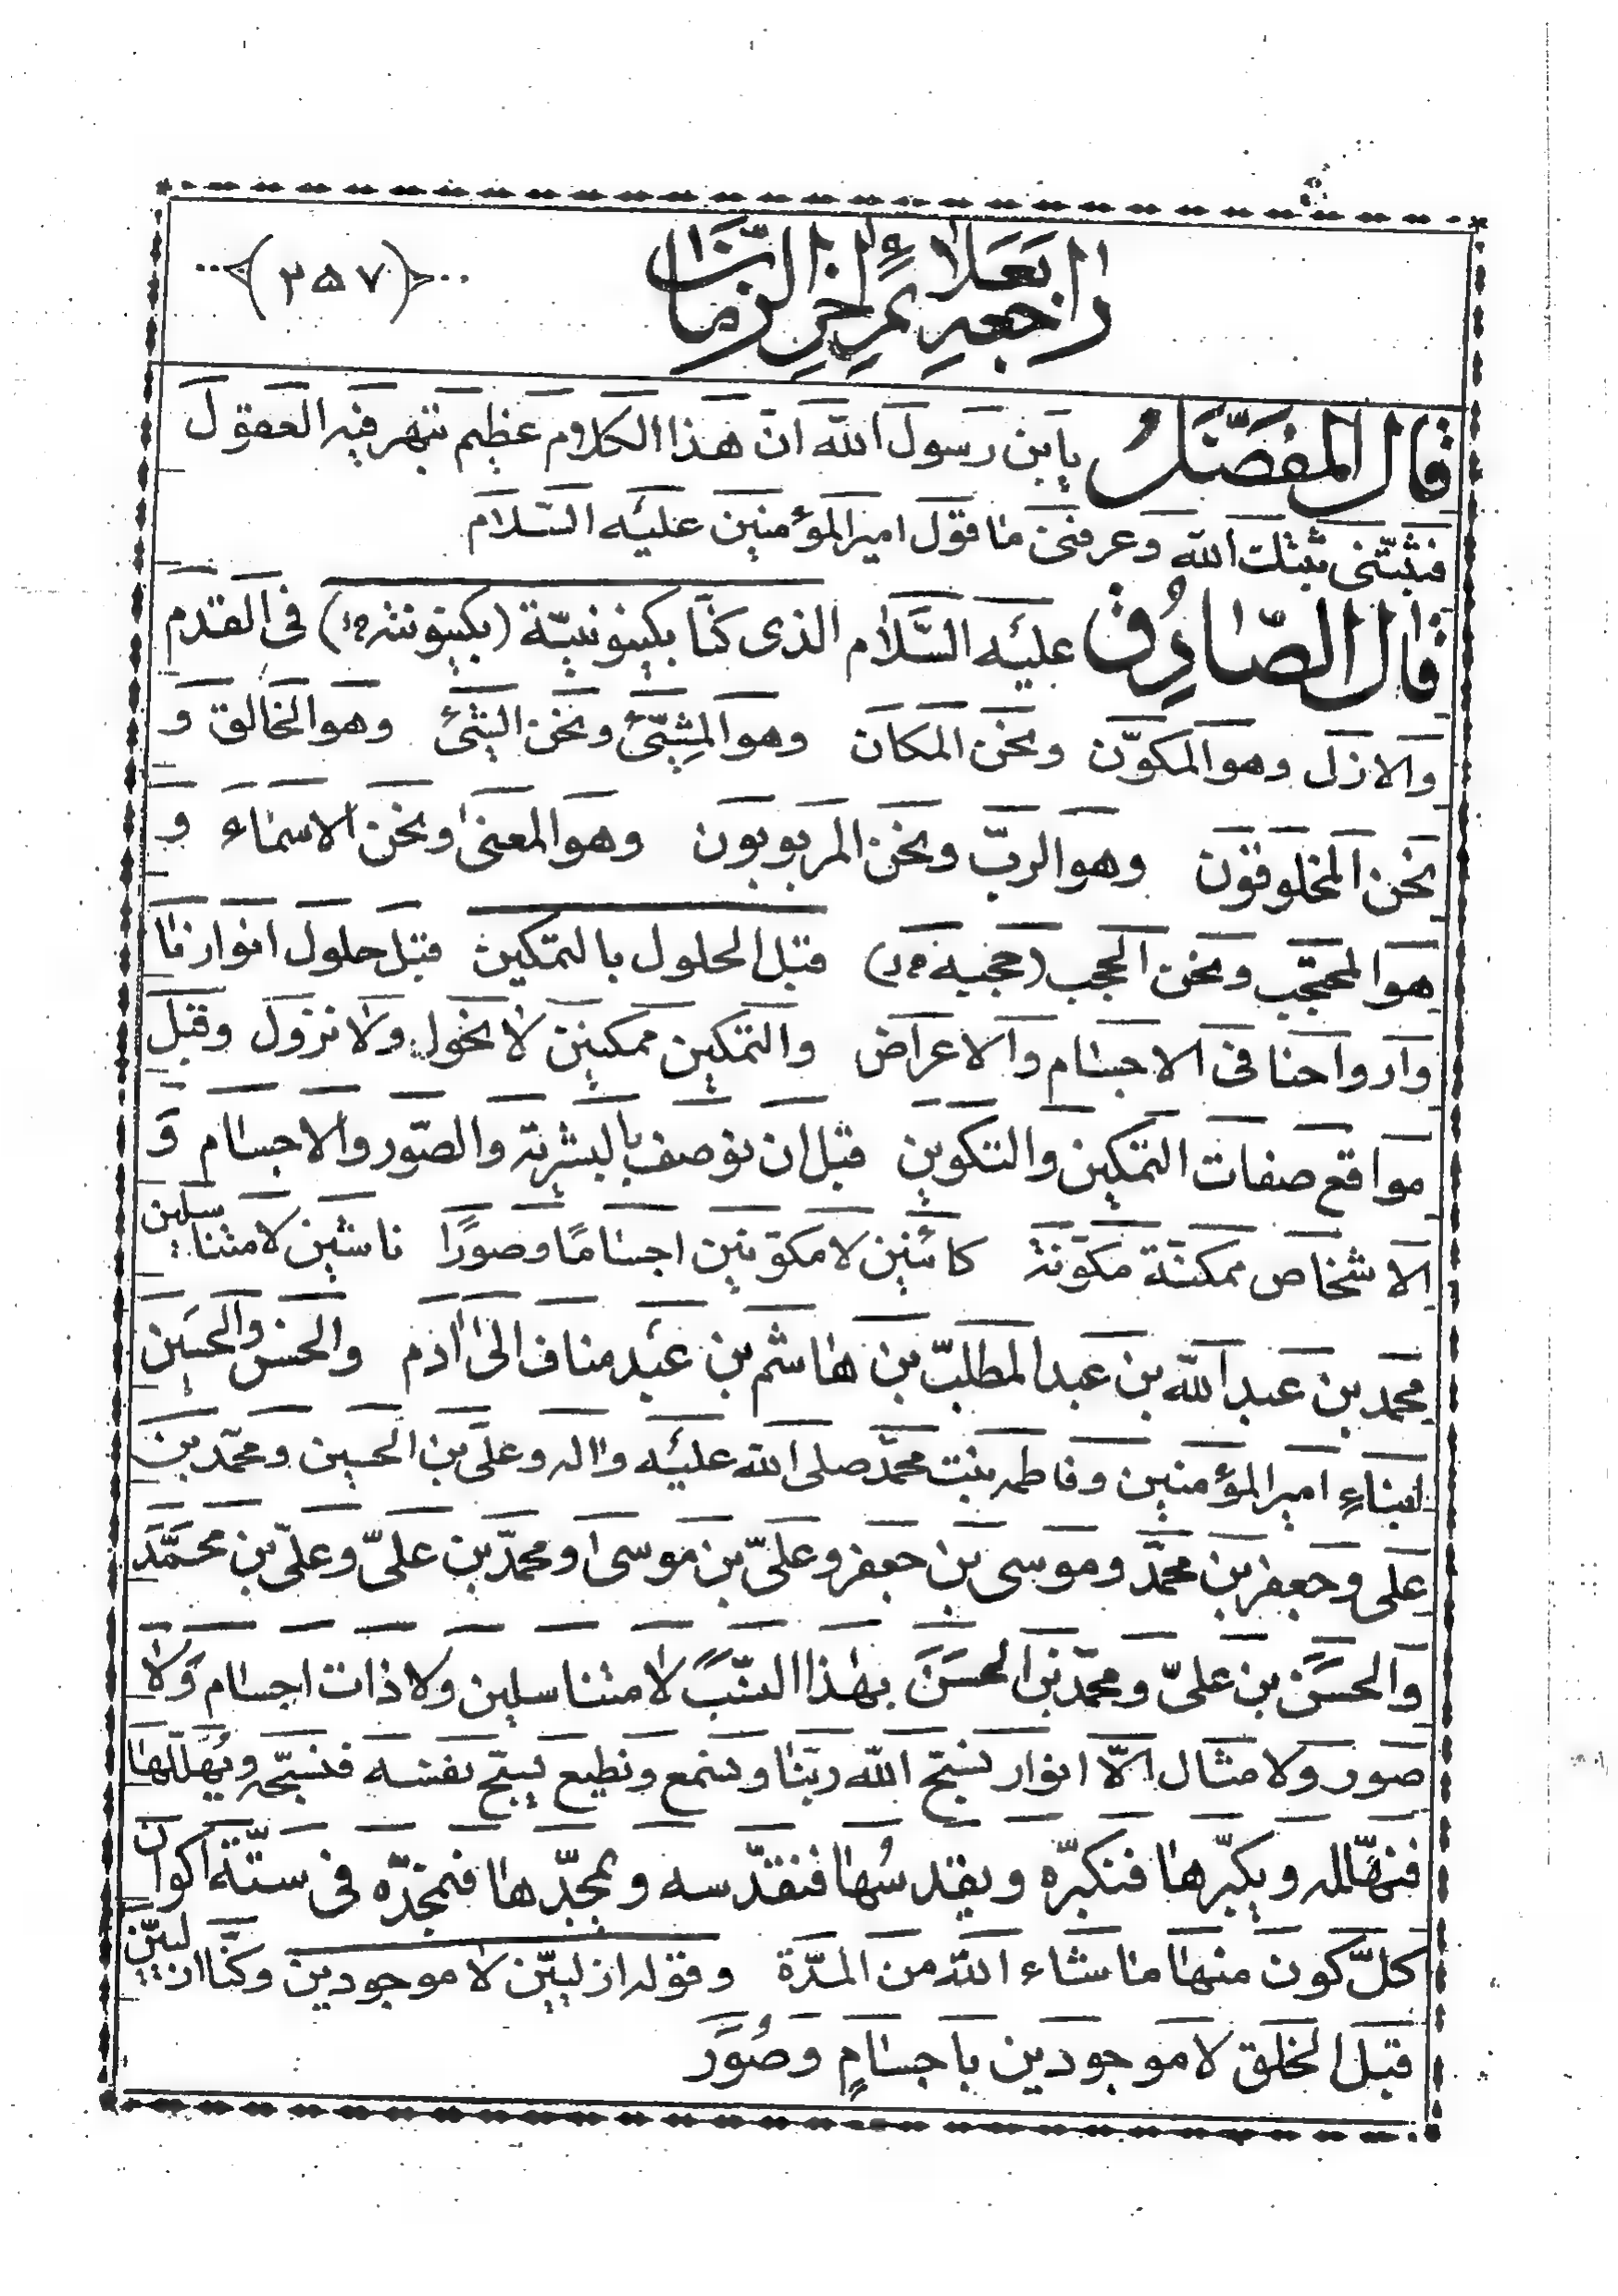 راجعه بعلائم اٰخر الزمان
(۲۵۷)
قال المفضّل يابن رسول الله ان هذا الكلام عظيم تبهر فيه العقول
فثبّتنى ثبتك الله وعرفنى ما قول امير المؤمنين عليه السّلام
قال الصّادق عليه السَّلام الذى كنّا بكينونيّة (بكينونته م) فى القدم
والازل وهو المكوّن ونحن المكان وهو المشِيّئ ونحن الشئ وهو الخالق و
نحن المخلوقون وهو الربّ ونحن المربوبون وهو المعنىٰ ونحن الاسماء و
هو المحتجب ونحن الحجب (حجبه م) قبل الحلول بالتمكين قبل حلول انوارنا
وارواحنا فى الاجسام والاعراض والتمكين ممكنين لا نحول ولا نزول وقبل
مواقع صفات التمكين والتكوين قبل ان نوصف بالبشرية والصّور والاجسام و
الاشخاص ممكنة مكوّنة كائنين لا مكوّنين اجسامًا وصورًا ناشين لا متناسلين
محمد بن عبد الله بن عبد المطلب بن هاشم بن عبد مناف الىٰ اٰدم والحسن والحسين
ابناءِ امير المؤمنين وفاطمه بنت محمّد صلى الله عليه واٰله وعلى بن الحسين ومحمّد بن
على وجعفر بن محمّد وموسى بن جعفر وعلىّ بن موسىٰ ومحمّد بن علىّ وعلىّ بن محمَّد
والحسن بن علىّ ومحمّد بن الحسن بهٰذا النسب لا متناسلين ولا ذات اجسام ولا
صور ولا مثال الّا انوار نسبّح الله ربّنا ونسمع ونطيع يسبّح نفسه فنسبّحه ويُهلّلها
فنهلّله ويكبّرها فنكبّره ويقدسُها فنقدّسه ويمجّدها فنمجّده فى ستّة اكوان
كلّ كون منها ما شاء الله من المدّة وقوله ازليّين لا موجودين وكنّا ازليّين
قبل الخلق لا موجودين باجسامٍ وصُوَر